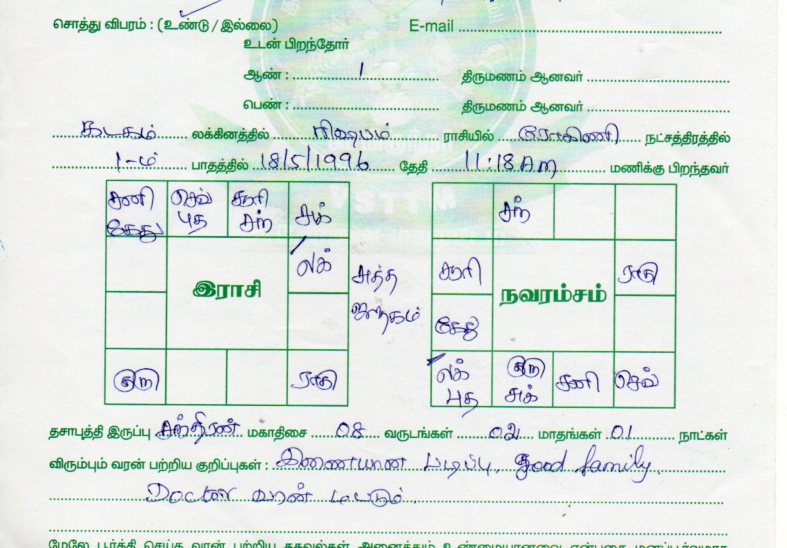 சொத்து விபரம் : (உண்டு / இல்லை) E-mail
உடன் பிறந்தோர்
ஆண் : 1 திருமணம் ஆனவர்
பெண் : திருமணம் ஆனவர்
கடகம் லக்கினத்தில் ரிஷபம் ராசியில் ரோகிணி நட்சத்திரத்தில்
1-ம் பாதத்தில் 18/5/1996 தேதி 11:18 Am மணிக்கு பிறந்தவர்
சனி கேது செவ் புத சூரி சந் சுக்
சந்
லக்
சூரி ராகு
இராசி
அத்த ஜாதகம்
நவரம்சம்
கேது
குரு ராகு
லக் புத குரு சுக் சனி செவ்
தசாபுத்தி இருப்பு சந்திரன் மகாதிசை 08 வருடங்கள் 02 மாதங்கள் 01 நாட்கள்
விரும்பும் வரன் பற்றிய குறிப்புகள் : இணையான படிப்பு, good family.
Doctor வரன் மட்டும்.
மேலே பூர்த்தி செய்த வரன் பற்றிய தகவல்கள் அனைத்தும் உண்மையானவை என்பதை மனப்பூர்வமாக